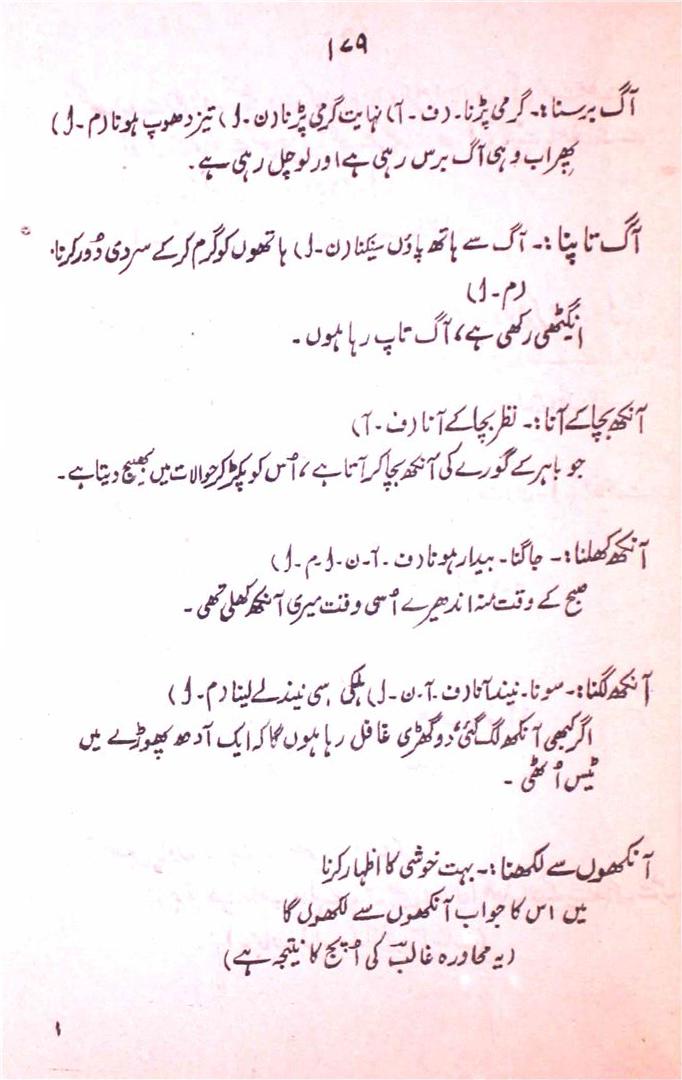 ۱۷۹
آگ برسنا:- گرمی پڑنا۔ (ف - آ) نہایت گرمی پڑنا (ن - ل) تیز دھوپ ہونا (م - ل)
پھر اب وہی آگ برس رہی ہے اور لو چل رہی ہے۔
آگ تاپنا:- آگ سے ہاتھ پاؤں سینکنا (ن - ل) ہاتھوں کو گرم کر کے سردی دُور کرنا۔
(م - ل)
انگیٹھی رکھی ہے، آگ تاپ رہا ہوں۔
آنکھ بچا کے آنا:- نظر بچا کے آنا (ف - آ)
جو باہر کے گورے کی آنکھ بچا کر آتا ہے، اُس کو پکڑ کر حوالات میں بھیج دیتا ہے۔
آنکھ کھلنا:- جاگنا۔ بیدار ہونا (ف - آ - ن - ل - م - ل)
صبح کے وقت منہ اندھیرے اُسی وقت میری آنکھ کھلی تھی۔
آنکھ لگنا:- سونا۔ نیند آنا (ف - آ - ن - ل) ہلکی سی نیند لے لینا (م - ل)
اگر کبھی آنکھ لگ گئی، دو گھڑی غافل رہا ہوں گا کہ ایک آدھ پھوڑے میں
ٹیس اُٹھی۔
آنکھوں سے لکھنا:- بہت خوشی کا اظہار کرنا
میں اس کا جواب آنکھوں سے لکھوں گا
(یہ محاورہ غالبؔ کی اُپج کا نتیجہ ہے)
۱